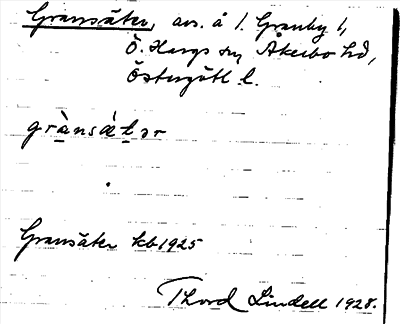 Gransäter, avs. å 1. Granby 1,
Ö. Hargs sn, Åkerbo hd,
Östergötl. l.
grànsá̀tər
Gransäter kb 1925
Thord Lindell 1928.